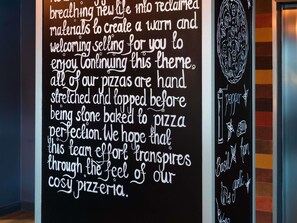 breathing new life into reclaimed
materials to create a warm and
welcoming selling for you to
enjoy. Continuing this theme,
all of our pizzas are hand
stretched and topped before
being stone baked to pizza
perfection. We hope that
this team effort transpires
through the feel of our
cosy pizzeria.
pepper
Basil